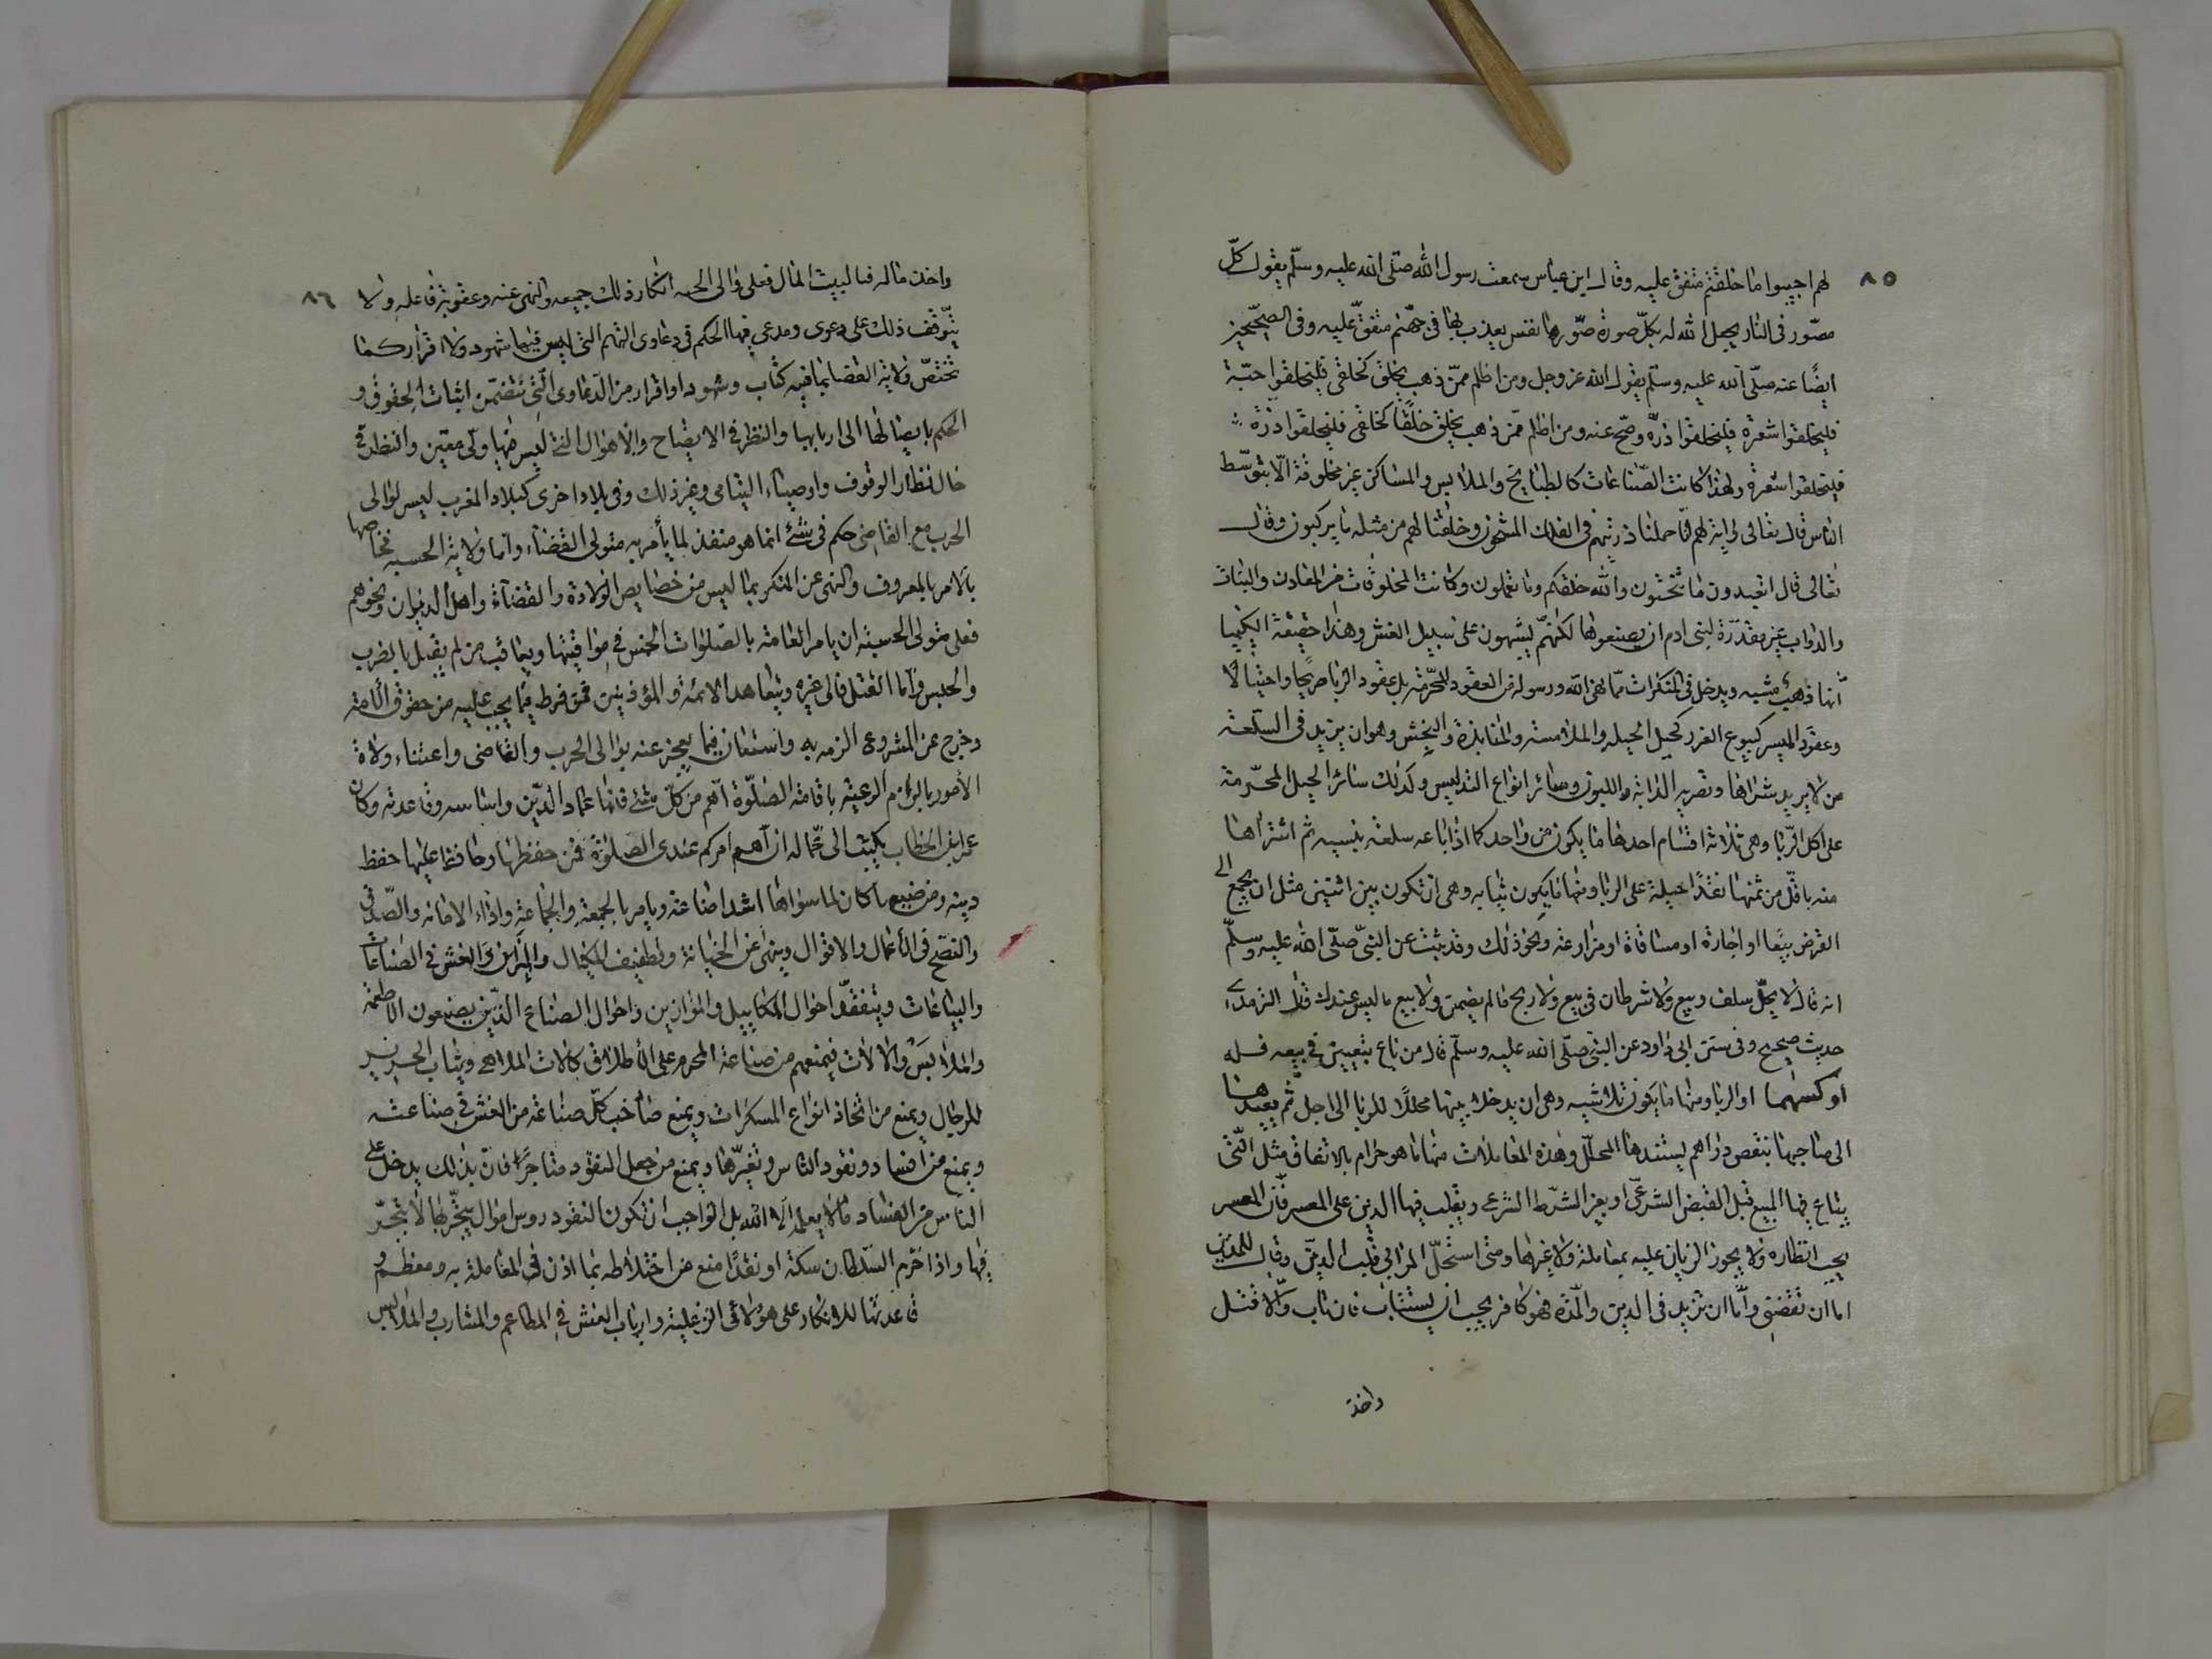 ٨٥
لهم احييوا ما خلقتم متفق عليه وقال ابن عباس سمعت رسول الله صلى الله عليه وسلم يقول كلّ
مصّور فى النار يجعل الله له بكلّ صورة صوّرها نفس يعذب بها فى جهنم متفق عليه وفى الصحيحين
ايضًا عنه صلّى الله عليه وسلّم يقول الله عز وجل ومن اظلم ممّن ذهب يخلق كخلقى فليخلقوا حبّة
فليخلقوا شعرة فليخلقوا ذرّة وصحّ عنه ومن اظلم ممّن ذهب يخلق خلقًا كخلقى فليخلقوا ذرّة
فليخلقوا شعرة ولهذا كانت الصّناعات كالطبايخ والملابس والمساكن غير مخلوقة الّا بتوسّط
الناس قال تعالى واية لهم انّا حملنا ذريتهم فى الفلك المشحون وخلقنا لهم من مثله ما يركبون وقال
تعالى قال اتعبدون ما تنحتون والله خلقكم وما تعملون وكانت المخلوقات من المعادن والنبات
والدواب غير مقدّرة لبنى ادم ان يصنعوها لكنهم يشبهون على سبيل الغش وهذا حقيقة الكيميا
انّها مشبه ويدخل فى المنكرات ممّا نهى الله ورسوله من العقود المحرّمة بل عقود الربا صريحًا واحتيالًا
وعقود الميسر كبيوع الغرر كحبل الحبله والملامسة والمنابذة والنجش وهو ان يزيد فى السلعة
من لا يريد شراها وتصريه الدابة اللبون وسائر انواع التدليس وكذلك سائر الحيل المحرّمة
على اكل الرّبا وهى ثلاثة اقسام احدها ما يكون من واحد كما اذا باعه سلعة بنسيه ثم اشتراها
منه باقلّ من ثمنها نقدًا حيلة على الربا ومنها ما يكون ثنايه وهى ان تكون بين اثنين مثل ان يجمع الى
القرض بيعًا او اجارة او مساقاة او مزارعة ونحو ذلك وقد ثبت عن النبىّ صلّى الله عليه وسلّم
انه قال لا يحلّ سلف وبيع ولا شرطان فى بيع ولا ربح ما لم يضمن ولا بيع ما ليس عندك قال الترمذى
حديث صحيح وفى سنن ابى داود عن النبى صلّى الله عليه وسلّم قال من باع بيعتين فى بيعه فله
اوكسهما او الربا ومنها ما يكون ثلاثيه وهى ان يدخلا بينها محلّلًا للربا الى اجل ثم يعيدها
الى صاحبها بنقص دراهم يستفيدها المحلّل وهذه المعاملات منها ما هو حرام بالاتفاق مثل الّتى
يباع فيها المبيع قبل القبض الشرعّى او بغير الشرط الشرعى ويقلب فيها الدين على المعسر فانّ المعسر
يجب انظاره ولا يجوز الزيادة عليه بمعاملة ولا غيرها ومتى استحلّ المرابى قلب الدين وقال للمدين
اما ان تقضى وامّا ان تزيد فى الدين والمدّه فهو كافر يجب ان يستتاب فان تاب والّا قتل
واخذ
٨٦
واخذ ماله لبيت المال فعلى والى الحسبه انكار ذلك جميعه والنهى عنه وعقوبة فاعله ولا
يتوقف ذلك على دعوى ومدعى فيها الحكم فى دعاوى التهم التى ليس فيها شهود ولا اقرار كما
تختصّ ولاية القضا بما فيه كتاب وشهود او اقرار من الدعاوى الّتى تتضمّن اثبات الحقوق و
الحكم بايصالها الى اربابها والنظر فى الابضاح والاموال التى ليس لها ولى معيّن والنظر فى
حال نظار الوقوف واوصياء اليتامى وغير ذلك وفى بلاد اخرى كبلاد المغرب ليس لوالى
الحرب مع القاضى حكم فى شئ انما هو منفذ لما يأمر به متولى القضاء وامّا ولاية الحسبه فخاصها
بالامر بالمعروف والنهى عن المنكر بما ليس من خصايص الولادة والقضاة واهل الديوان ونحوهم
فعلى متولى الحسبة ان يامر العامّة بالصّلوات الخمس فى مواقيتها ويعاقب من لم يقبل بالضرب
والحبس وامّا القتل فالى غيره ويتعاهد الائمّة والمؤذنين فمن فرط فيما يجب عليه من حقوق الامّة
وخرج عن المشروع الزمه به واستعان فيما يعجز عنه بوالى الحرب والقاضى واعتناء ولاة
الامور بالزام الرعيّة باقامة الصلوة اهم من كلّ شئ فانها عماد الدّين واساسه وقاعدته وكان
عمر ابن الخطاب يكتب الى عمّاله ان اهم امركم عندى الصلوة فمن حفظها وحافظ عليها حفظ
دينه ومن ضيعها كان لما سواها اشد اضاعة ويامر بالجمعة والجماعة واداء الامانه والصّدق
والنصح فى الاعمال والاقوال وينهى عن الخيانة وتطفيف المكيال والميزان والغش فى الصّناعات
والبياعات ويتفقد احوال المكاييل والموازين واحوال الصناع الذين يصنعون الاطعمة
والملابس والالات فيمنعهم من صناعة المحرم على الاطلاق كآلات الملاهى وثياب الحرير
للرجال ويمنع من اتخاذ انواع المسكرات ويمنع صاحب كلّ صناعة من الغش فى صناعته
ويمنع من افساد نقود الناس وتغيّرها ويمنع من جعل النقود متاجرًا فانّ بذلك يدخل على
الناس من الفساد ما لا يعلمه الّا الله بل الواجب ان تكون النقود روس اموال يتّجر بها لا يتّجر
فيها واذا حرّم السّلطان سكة او نقدًا منع من اختلاطه بما اذن فى المعاملة به ومعظم
قاعدتها للانكار على هؤلائى الزغلية وارباب الغش فى المطاعم والمشارب والملابس